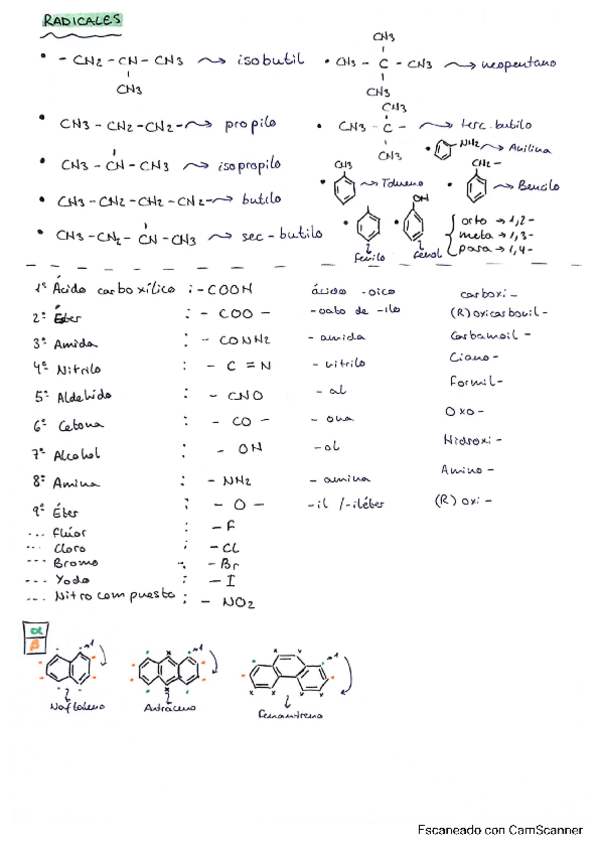 RADICALES
• - CH2 - CH - CH3 ⇝ isobutil
CH3
CH3
• CH3 - C - CH3 ⇝ neopentano
CH3
• CH3 - CH2 - CH2 - ⇝ propilo
CH3
• CH3 - C - ⇝ terc. butilo
CH3
• NH2 ⇝ Anilina
• CH3 - CH - CH3 ⇝ isopropilo
• CH3 ⇝ Tolueno
• CH2 - ⇝ Bencilo
• CH3 - CH2 - CH2 - CH2 - ⇝ butilo
• fenilo
• OH fenol
orto → 1,2-
meta → 1,3-
para → 1,4-
• CH3 - CH2 - CH - CH3 ⇝ sec-butilo
1º Ácido carboxílico : - COOH ácido -oico carboxi -
2º Éster : - COO - -oato de -ilo (R)oxicarbonil -
3º Amida : - CONH2 - amida Carbamoil -
4º Nitrilo : - C ≡ N - nitrilo Ciano -
5º Aldehído : - CHO - al Formil -
6º Cetona : - CO - - ona Oxo -
7º Alcohol : - OH - ol Hidroxi -
8º Amina : - NH2 - amina Amino -
9º Éter : - O - -il /-iléter (R) oxi -
... Flúor : - F
... Cloro : - Cl
... Bromo : - Br
... Yodo : - I
... Nitrocompuesto : - NO2
α
β
Naftaleno
Antraceno
Fenantreno
Escaneado con CamScanner